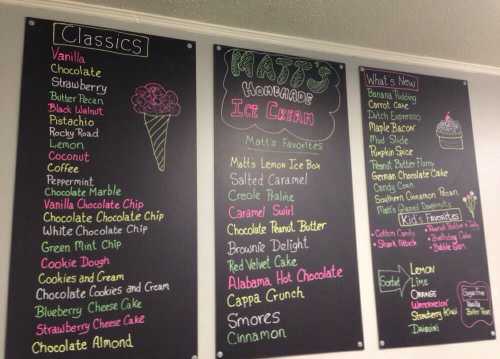 Classics
Vanilla
Chocolate
Strawberry
Butter Pecan
Black Walnut
Pistachio
Rocky Road
Lemon
Coconut
Coffee
Peppermint
Chocolate Marble
Vanilla Chocolate Chip
Chocolate Chocolate Chip
White Chocolate Chip
Green Mint Chip
Cookie Dough
Cookies and Cream
Chocolate Cookies and Cream
Blueberry Cheese Cake
Strawberry Cheese Cake
Chocolate Almond
MATT'S
HOMEMADE
ICE CREAM
Matt's Favorites
Matt's Lemon Ice Box
Salted Caramel
Creole Praline
Caramel Swirl
Chocolate Peanut Butter
Brownie Delight
Red Velvet Cake
Alabama Hot Chocolate
Cappa Crunch
Smores
Cinnamon
What's New
Banana Pudding
Carrot Cake
Dutch Espresso
Maple Bacon
Mud Slide
Pumpkin Spice
Peanut Butter Fluffy
German Chocolate Cake
Candy Corn
Southern Cinnamon Pecan
Matt's Glazed Doughnuts
Kid's Favorites
Cotton Candy
Shark Attack
Peanut Butter & Jelly
Birthday Cake
Bubble Gum
Sorbet
Lemon
Lime
Orange
Watermelon
Strawberry Kiwi
Daiquiri
Sugar Free
Vanilla
Butter Pecan